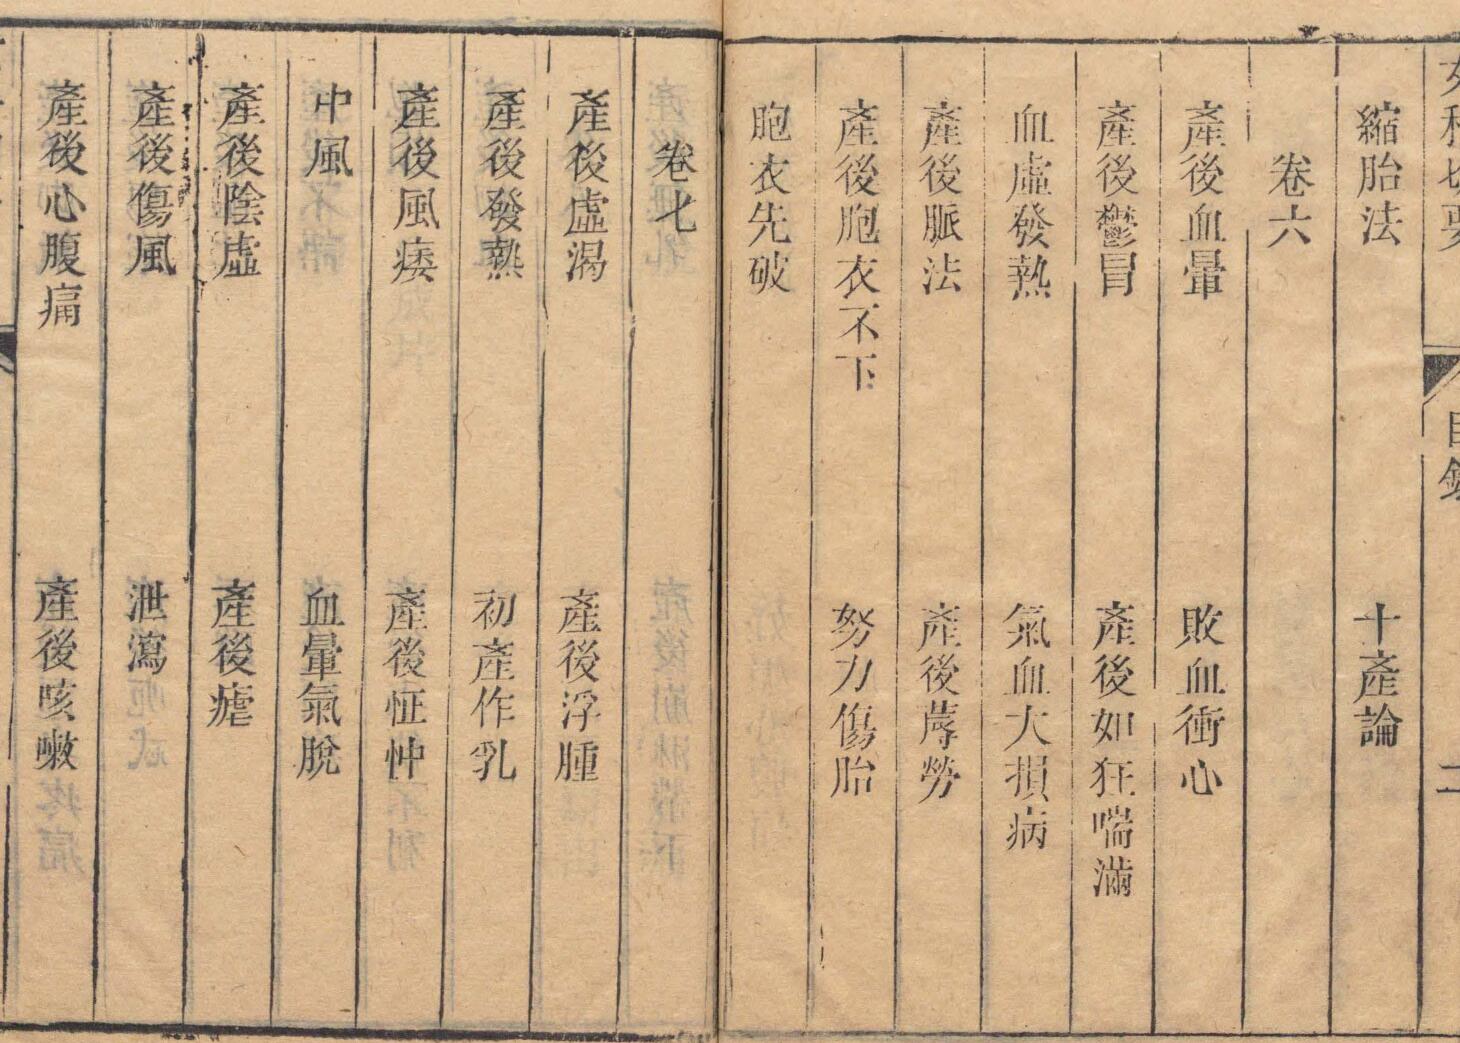 女科切要
目錄
二
縮胎法 十產論
卷六
產後血暈 敗血衝心
產後鬱冒 產後如狂喘滿
血虛發熱 氣血大損病
產後脈法 產後蓐勞
產後胞衣不下 努力傷胎
胞衣先破
卷七
產後虛渴 產後浮腫
產後發熱 初產作乳
產後風痿 產後怔忡
中風 血暈氣脫
產後陰虛 產後瘧
產後傷風 泄瀉
產後心腹痛 產後咳嗽